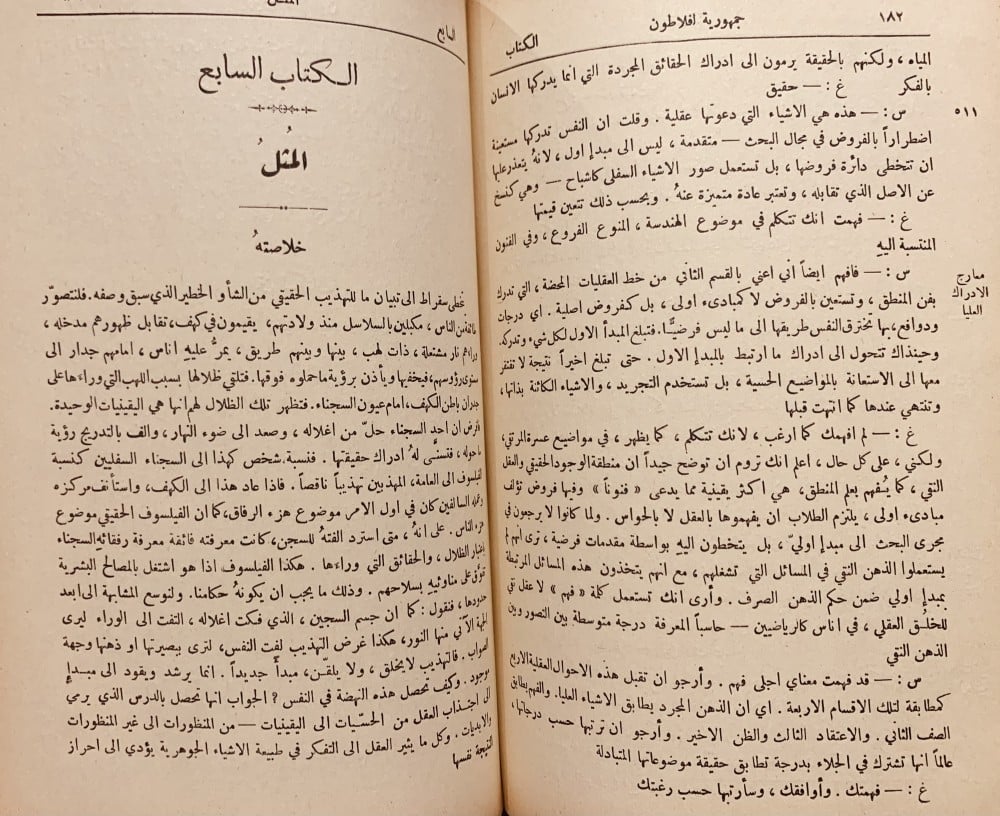 ١٨٢
جمهورية افلاطون
الكتاب
المياه ، ولكنهم بالحقيقة يرمون الى ادراك الحقائق المجردة التي انما يدركها الانسان
بالفكر غ : — حقيق
٥١١
س : — هذه هي الاشياء التي دعوتها عقلية . وقلت ان النفس تدركها مستعينة
اضطراراً بالفروض في مجال البحث — متقدمة ، ليس الى مبدإ اول ، لانهُ يتعذر عليها
ان تتخطى دائرة فروضها ، بل تستعمل صور الاشياء السفلى كاشباح — وهي كنسخ
عن الاصل الذي تقابله ، وتعتبر عادة متميزة عنهُ . وبحسب ذلك تتعين قيمتها
غ : — فهمت انك تتكلم في موضوع الهندسة ، المنوع الفروع ، وفي الفنون
المنتسبة اليهِ
معارج
الادراك
العليا
س : — فافهم ايضاً اني اعني بالقسم الثاني من خط العقليات المحضة ، التي تدرك
بفن المنطق ، وتستعين بالفروض لا كمبادىء اولى ، بل كفروض اصلية . اي درجات
ودوافع ، بها يخترق النفس طريقها الى ما ليس فرضيًّا . فتبلغ المبدأ الاول لكل شيء وتدركه .
وحينذاك تتحول الى ادراك ما ارتبط بالمبدإ الاول . حتى تبلغ اخيراً نتيجة لا تفتقر
معها الى الاستعانة بالمواضيع الحسية ، بل تستخدم التجريد ، والاشياء الكائنة بذاتها ،
وتنتهي عندها كما انتهت قبلها
غ : — لم افهمك كما ارغب ، لانك تتكلم ، كما يظهر ، في مواضيع عسرة المرتقي ،
ولكني ، على كل حال ، اعلم انك تروم ان توضح جيداً ان منطقة الوجود الحقيقي والعقل
النقي ، كما يُفهم بعلم المنطق ، هي اكثر يقينية مما يدعى « فنوناً » وفيها فروض تؤلف
مبادىء اولى ، يلتزم الطلاب ان يفهموها بالعقل لا بالحواس . ولما كانوا لا يرجعون في
مجرى البحث الى مبدإ اوليّ ، بل يتخطون اليهِ بواسطة مقدمات فرضية ، ترى انهم لم
يستعملوا الذهن النقي في المسائل التي تشغلهم ، مع انهم يتخذون هذه المسائل المرتبطة
بمبدإ اولي ضمن حكم الذهن الصرف . وأرى انك تستعمل كلمة « فهم » لا عقل نقي
للخلُق العقلي ، في اناس كالرياضيين — حاسباً المعرفة درجة متوسطة بين التصور وبين
الذهن النقي
س : — قد فهمت معناي اجلى فهم . وأرجو ان تقبل هذه الاحوال العقلية الاربع
كمطابقة لتلك الاقسام الاربعة . اي ان الذهن المجرد يطابق الاشياء العليا . والفهم يطابق
الصف الثاني . والاعتقاد الثالث والظن الاخير . وأرجو ان ترتبها حسب درجاتها ،
عالماً انها تشترك في الجلاء بدرجة تطابق حقيقة موضوعاتها المتبادلة
غ : — فهمتك . وأوافقك ، وسأرتبها حسب رغبتك
السابع
الكتاب السابع
المُثلُ
خلاصتهُ
تخطى سقراط الى تبيان ما للتهذيب الحقيقي من الشأو الخطير الذي سبق وصفه . فلنتصوّر
طائفة من الناس ، مكبلين بالسلاسل منذ ولادتهم ، يقيمون في كهف ، تقابل ظهورهم مدخله ،
وراءهم نار مشتعلة ، ذات لهب ، بينها وبينهم طريق ، يمرُّ عليهِ اناس ، امامهم جدار الى
مستوى رؤوسهم ، فيخفيها ويأذن برؤية ما حملوه فوقها . فتلقي ظلالها بسبب اللهب التي وراءها على
جدران باطن الكهف ، امام عيون السجناء . فتظهر تلك الظلال لهم انها هي اليقينيات الوحيدة .
فافرض ان احد السجناء حلّ من اغلاله ، وصعد الى ضوء النهار ، والف بالتدريج رؤية
ما حوله ، فتسنَّى لهُ ادراك حقيقتها . فنسبة شخص كهذا الى السجناء السفليين كنسبة
الفيلسوف الى العامة ، المهذبين تهذيباً ناقصاً . فاذا عاد هذا الى الكهف ، واستأنف مركزه
وعمله السالفين كان في اول الامر موضوع هزء الرفاق ، كما ان الفيلسوف الحقيقي موضوع
هزء الناس . على انهُ ، متى استرد الفتهُ للسجن ، كانت معرفته فائقة معرفة رفقائهِ السجناء
باعتبار الظلال ، والحقائق التي وراءها . هكذا الفيلسوف اذا هو اشتغل بالمصالح البشرية
تفوّق على مناوئيهِ بسلاحهم . وذلك ما يجب ان يكونهُ حكامنا . ولنوسع المشابهة الى ابعد
حدودها ، فنقول : كما ان جسم السجين ، الذي فكت اغلاله ، التفت الى الوراء ليرى
الجهة الآتي منها النور ، هكذا غرض التهذيب لفت النفس ، لترى ببصيرتها او ذهنها وجهة
الصواب . فالتهذيب لا يخلق ، ولا يلقّن ، مبدأً جديداً . انما يرشد ويقود الى مبدإٍ
موجود . وكيف تحصل هذه النهضة في النفس ? الجواب انها تحصل بالدرس الذي يرمي
الى اجتذاب العقل من الحسّيات الى اليقينيات — من المنظورات الى غير المنظورات
والابديات . وكل ما يثير العقل الى التفكر في طبيعة الاشياء الجوهرية يؤدي الى احراز
النتيجة نفسها